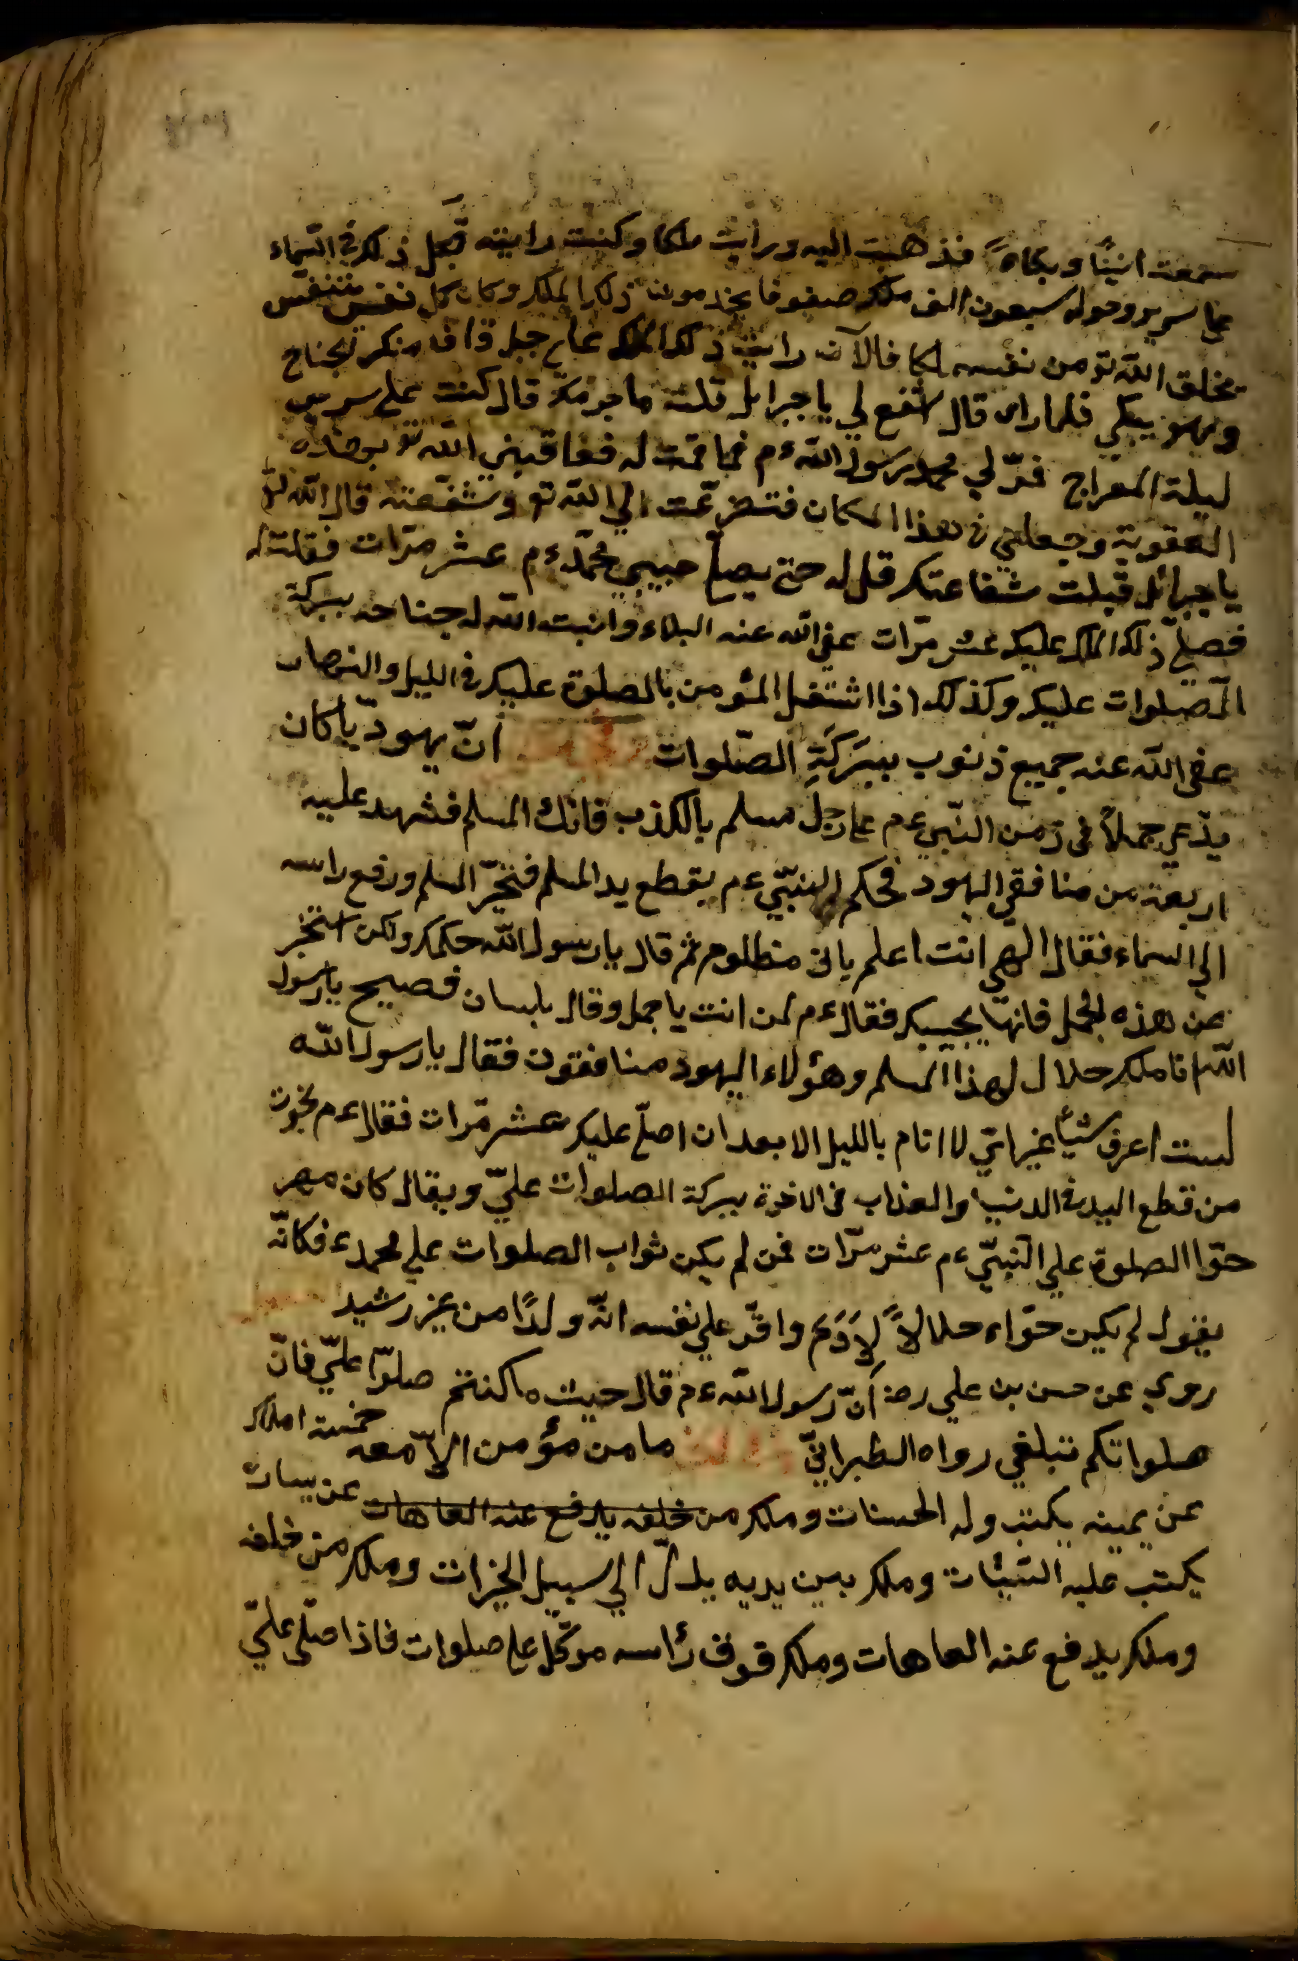 سمعت انينًا وبكاءً فذهبت اليه ورايت ملكا وكنت رايته قبل ذلك في السّماء
على سرير وحوله سبعون الف ملك صفوفا يخدمون ذلك الملك وكان كل نفس يتنفس
يخلق الله تع من نفسه ملكا فالآن رايت ذلك الملك على جبل قاف منكسر الجناح
وهو يبكي فلما راى قال اشفع لي يا جبرايل قلت ما جرمك قال كنت على سرير
ليلة المعراج فمرّ لي محمد رسول الله ءم فما قمت له فعاقبني الله تع بهذه
العقوبة وجعلني في هذا المكان فتضرّعت الي الله تع وشفّعته قال الله تع
يا جبرائل قبلت شفاعتك قل له حتى يصلّ حبيبي محمّد ءم عشر مرّات فقلت له
فصلّى ذلك الملك عليك عشر مرّات عفى الله عنه البلاء وانبت الله له جناحه ببركة
الصّلوات عليك وكذلك اذا اشتغل المئومن بالصلوة عليك في الليل والنهار
عفى الله عنه جميع ذنوب ببَرَكَةِ الصّلوات أنّ يهوديّا كان
يدّعي جملاً في زمن النّبي عم على رجل مسلم بالكذب فانك المسلم فشهد عليه
اربعة من منافقي اليهود فحكم النبيّ ءم بقطع يد المسلم فتحيّر المسلم ورفع راسه
الي السماء فقال الهي انت اعلم بانى مظلوم ثم قال يا رسول الله حكمك ولكن استخبر
عن هذه الجمل فانها يجيبك فقال ءم لمن انت يا جمل وقال بلسان فصيح يا رسول
الله انا ملك حلال لهذا المسلم وهؤلاء اليهود منافقون فقال يا رسول الله
لست اعرف شيأ غير انّي لا انام بالليل الا بعد ان اصلّ عليك عشر مرّات فقال ءم نجوت
من قطع اليد في الدنيا والعذاب في الاخرة ببركة الصلوات عليّ ويقال كان مهر
حوّا الصلوة على النّبيّ ءم عشر مرّات فمن لم يكن ثواب الصلوات على محمد ء فكانّه
يقول لم يكن حوّاء حلالاً لِاَدَم واقرّ على نفسه انّه ولدًا من غير رشيد
روي عن حسن بن علي رضـ أنّ رسول الله ءم قال حيث ما كنتم صلوّا عليّ فانّ
صلواتكم تبلغني رواه الطبرانيّ ما من مؤمن الاّ معه خمسة املاك
عن يمينه يكتب له الحسنات وملك من خلفه يدفع عنه العاهات عن يسات
يكتب عليه السّيئات وملك بين يديه يدلّ الي سبيل الخيرات وملك من خلفه
وملك يدفع عنه العاهات وملك قوق رأسه موكّل على صلوات فاذا صلّى عليّ